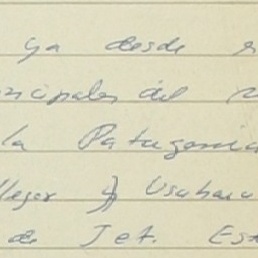 ya desde
ncipales del
la Patagonia
llegar a Usuhaia
de Jet. Es